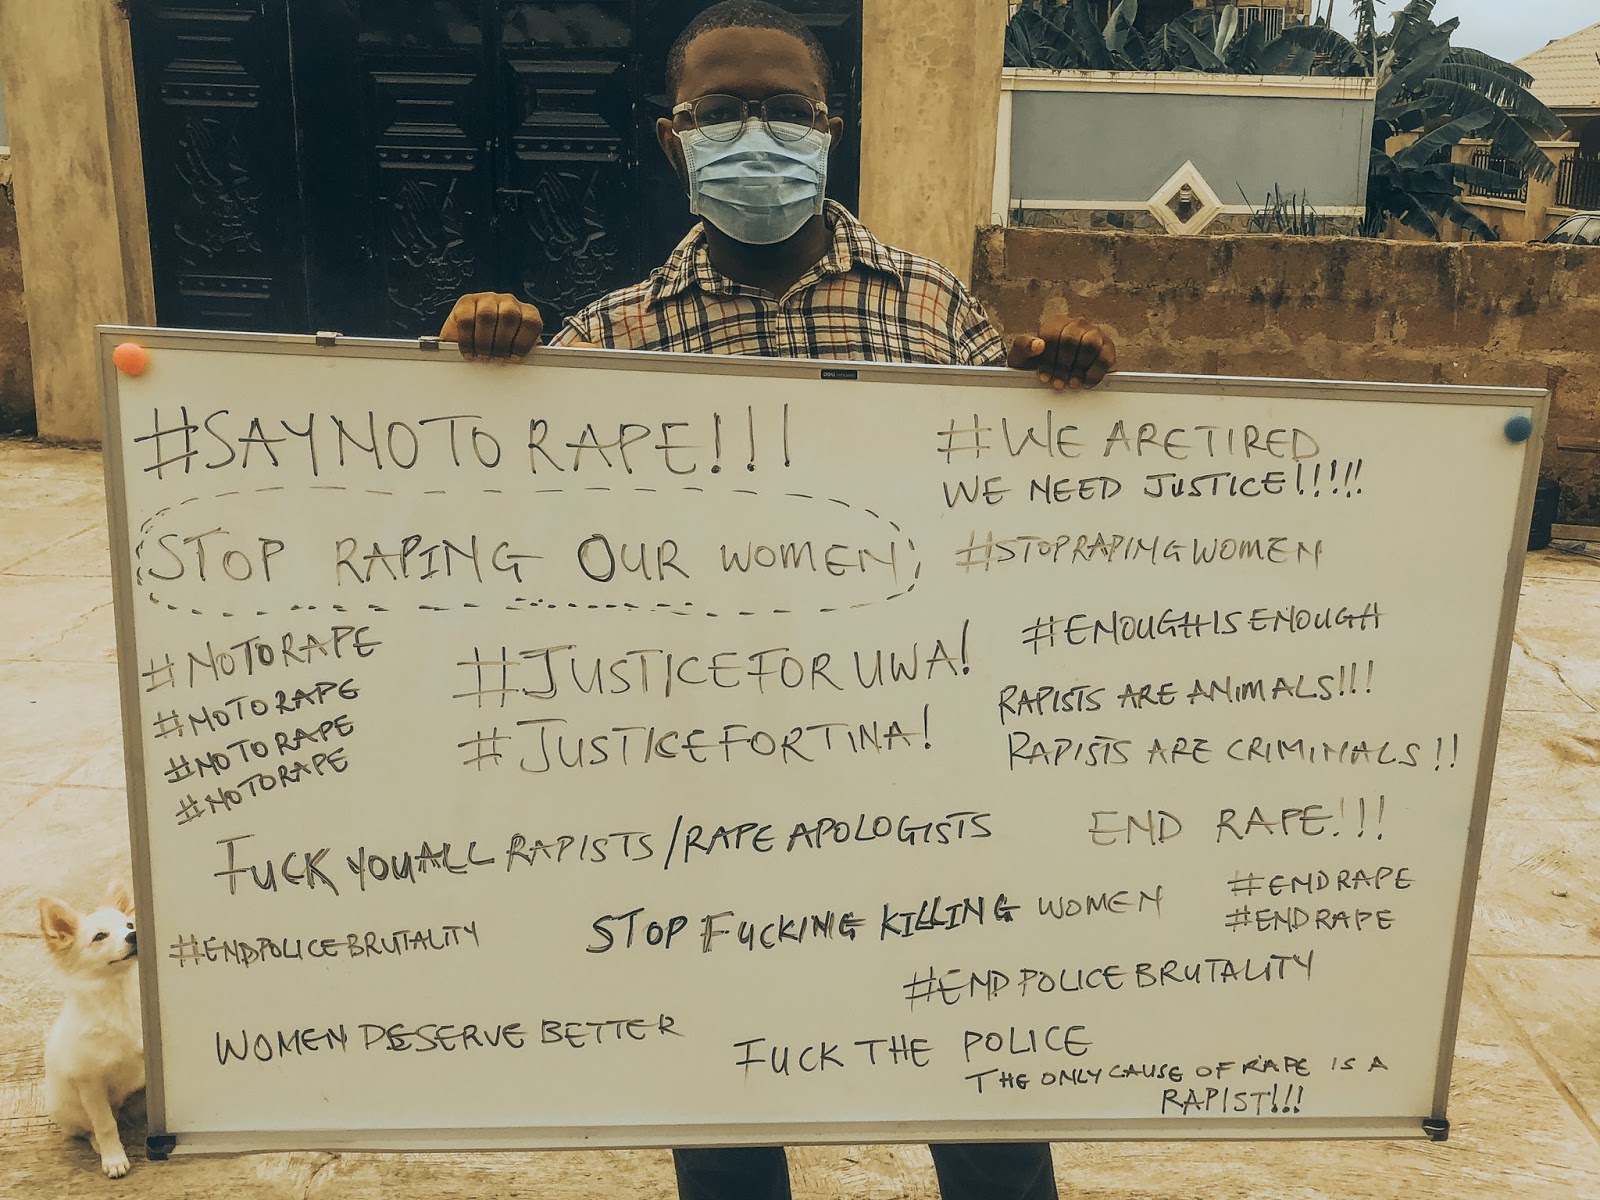 #SAYNOTO RAPE!!!
STOP RAPING OUR WOMEN
#NOTORAPE
#NOTORAPE
#NOTORAPE
#NOTORAPE
#JUSTICEFORUWA!
#JUSTICEFORTINA!
#WE ARETIRED
WE NEED JUSTICE!!!!!
#STOPRAPINGWOMEN
#ENOUGHISENOUGH
RAPISTS ARE ANIMALS!!!
RAPISTS ARE CRIMINALS!!
FUCK YOU ALL RAPISTS/RAPE APOLOGISTS
END RAPE!!!
#ENDRAPE
#ENDRAPE
#ENDPOLICEBRUTALITY
STOP FUCKING KILLING WOMEN
#ENDPOLICEBRUTALITY
WOMEN DESERVE BETTER
FUCK THE POLICE
THE ONLY CAUSE OF RAPE IS A
RAPIST!!!